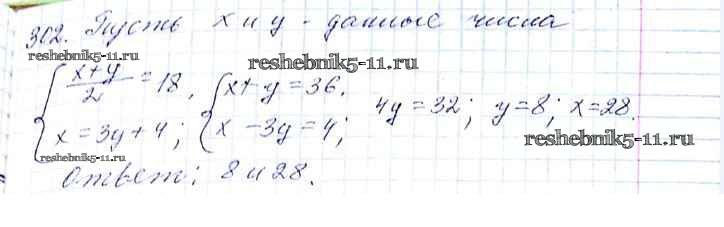 302. Пусть x и y - данные числа
reshebnik5-11.ru
reshebnik5-11.ru
{ (x+y)/2 = 18, { x+y=36.
{ x = 3y+4; { x-3y=4; 4y=32; y=8; x=28.
reshebnik5-11.ru
reshebnik5-11.ru
Ответ: 8 и 28.